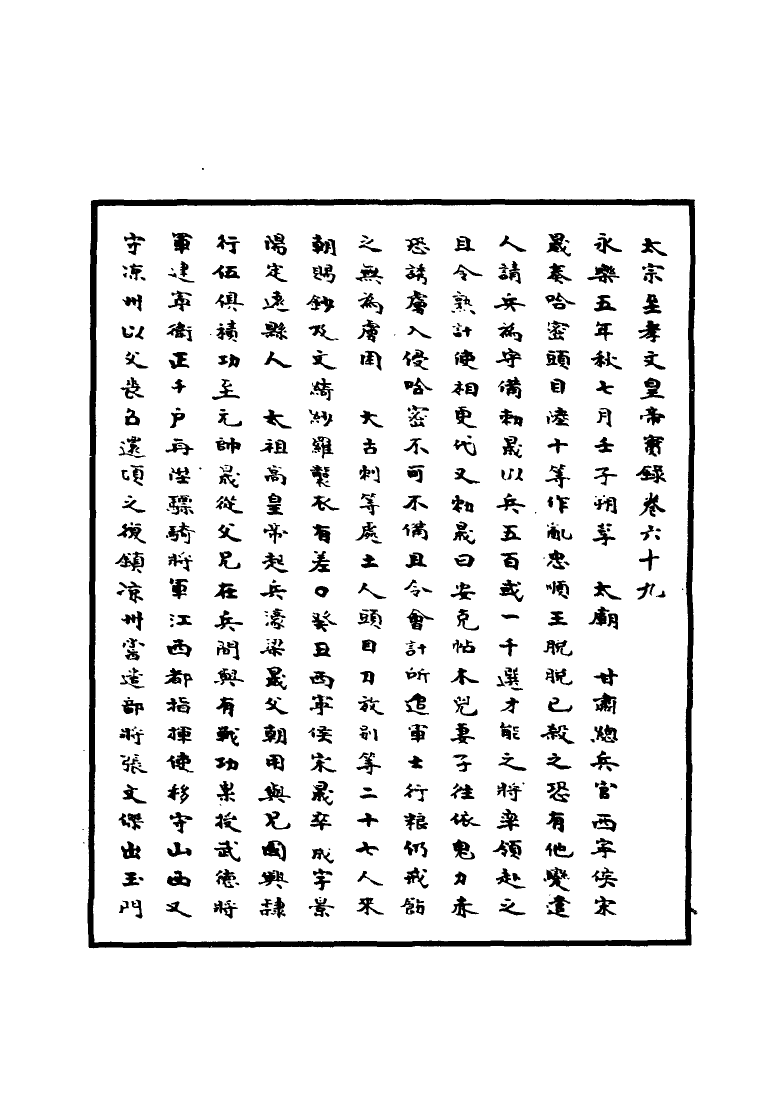 太宗至孝文皇帝寳録卷六十九
永樂五年秋七月壬子朔享　太廟　甘肅總兵官西寧侯宋
晟奏哈密頭目陸十等作亂忠順王脫脫已殺之恐有他變遣
人請兵為守備勑晟以兵五百或一千選才能之將率領赴之
且令熟計使相更代又勑晟曰安克帖木兒妻子往依鬼力赤
恐誘虜入侵哈密不可不備且令會計所遣軍士行粮仍戒飭
之無為虜困　大古剌等處土人頭目刀放別等二十七人來
朝賜鈔及文綺紗羅襲衣有差〇癸丑西寧侯宋晟卒成字景
陽定遠縣人　太祖高皇帝起兵濠梁晟父朝用與兄國興隷
行伍俱積功至元帥晟從父兄在兵間與有戰功累授武德將
軍建寧衛正千戶再陞驃騎將軍江西都指揮使移守山西又
守凉州以父喪召還項之復鎮凉州嘗遣部將張文傑出玉門